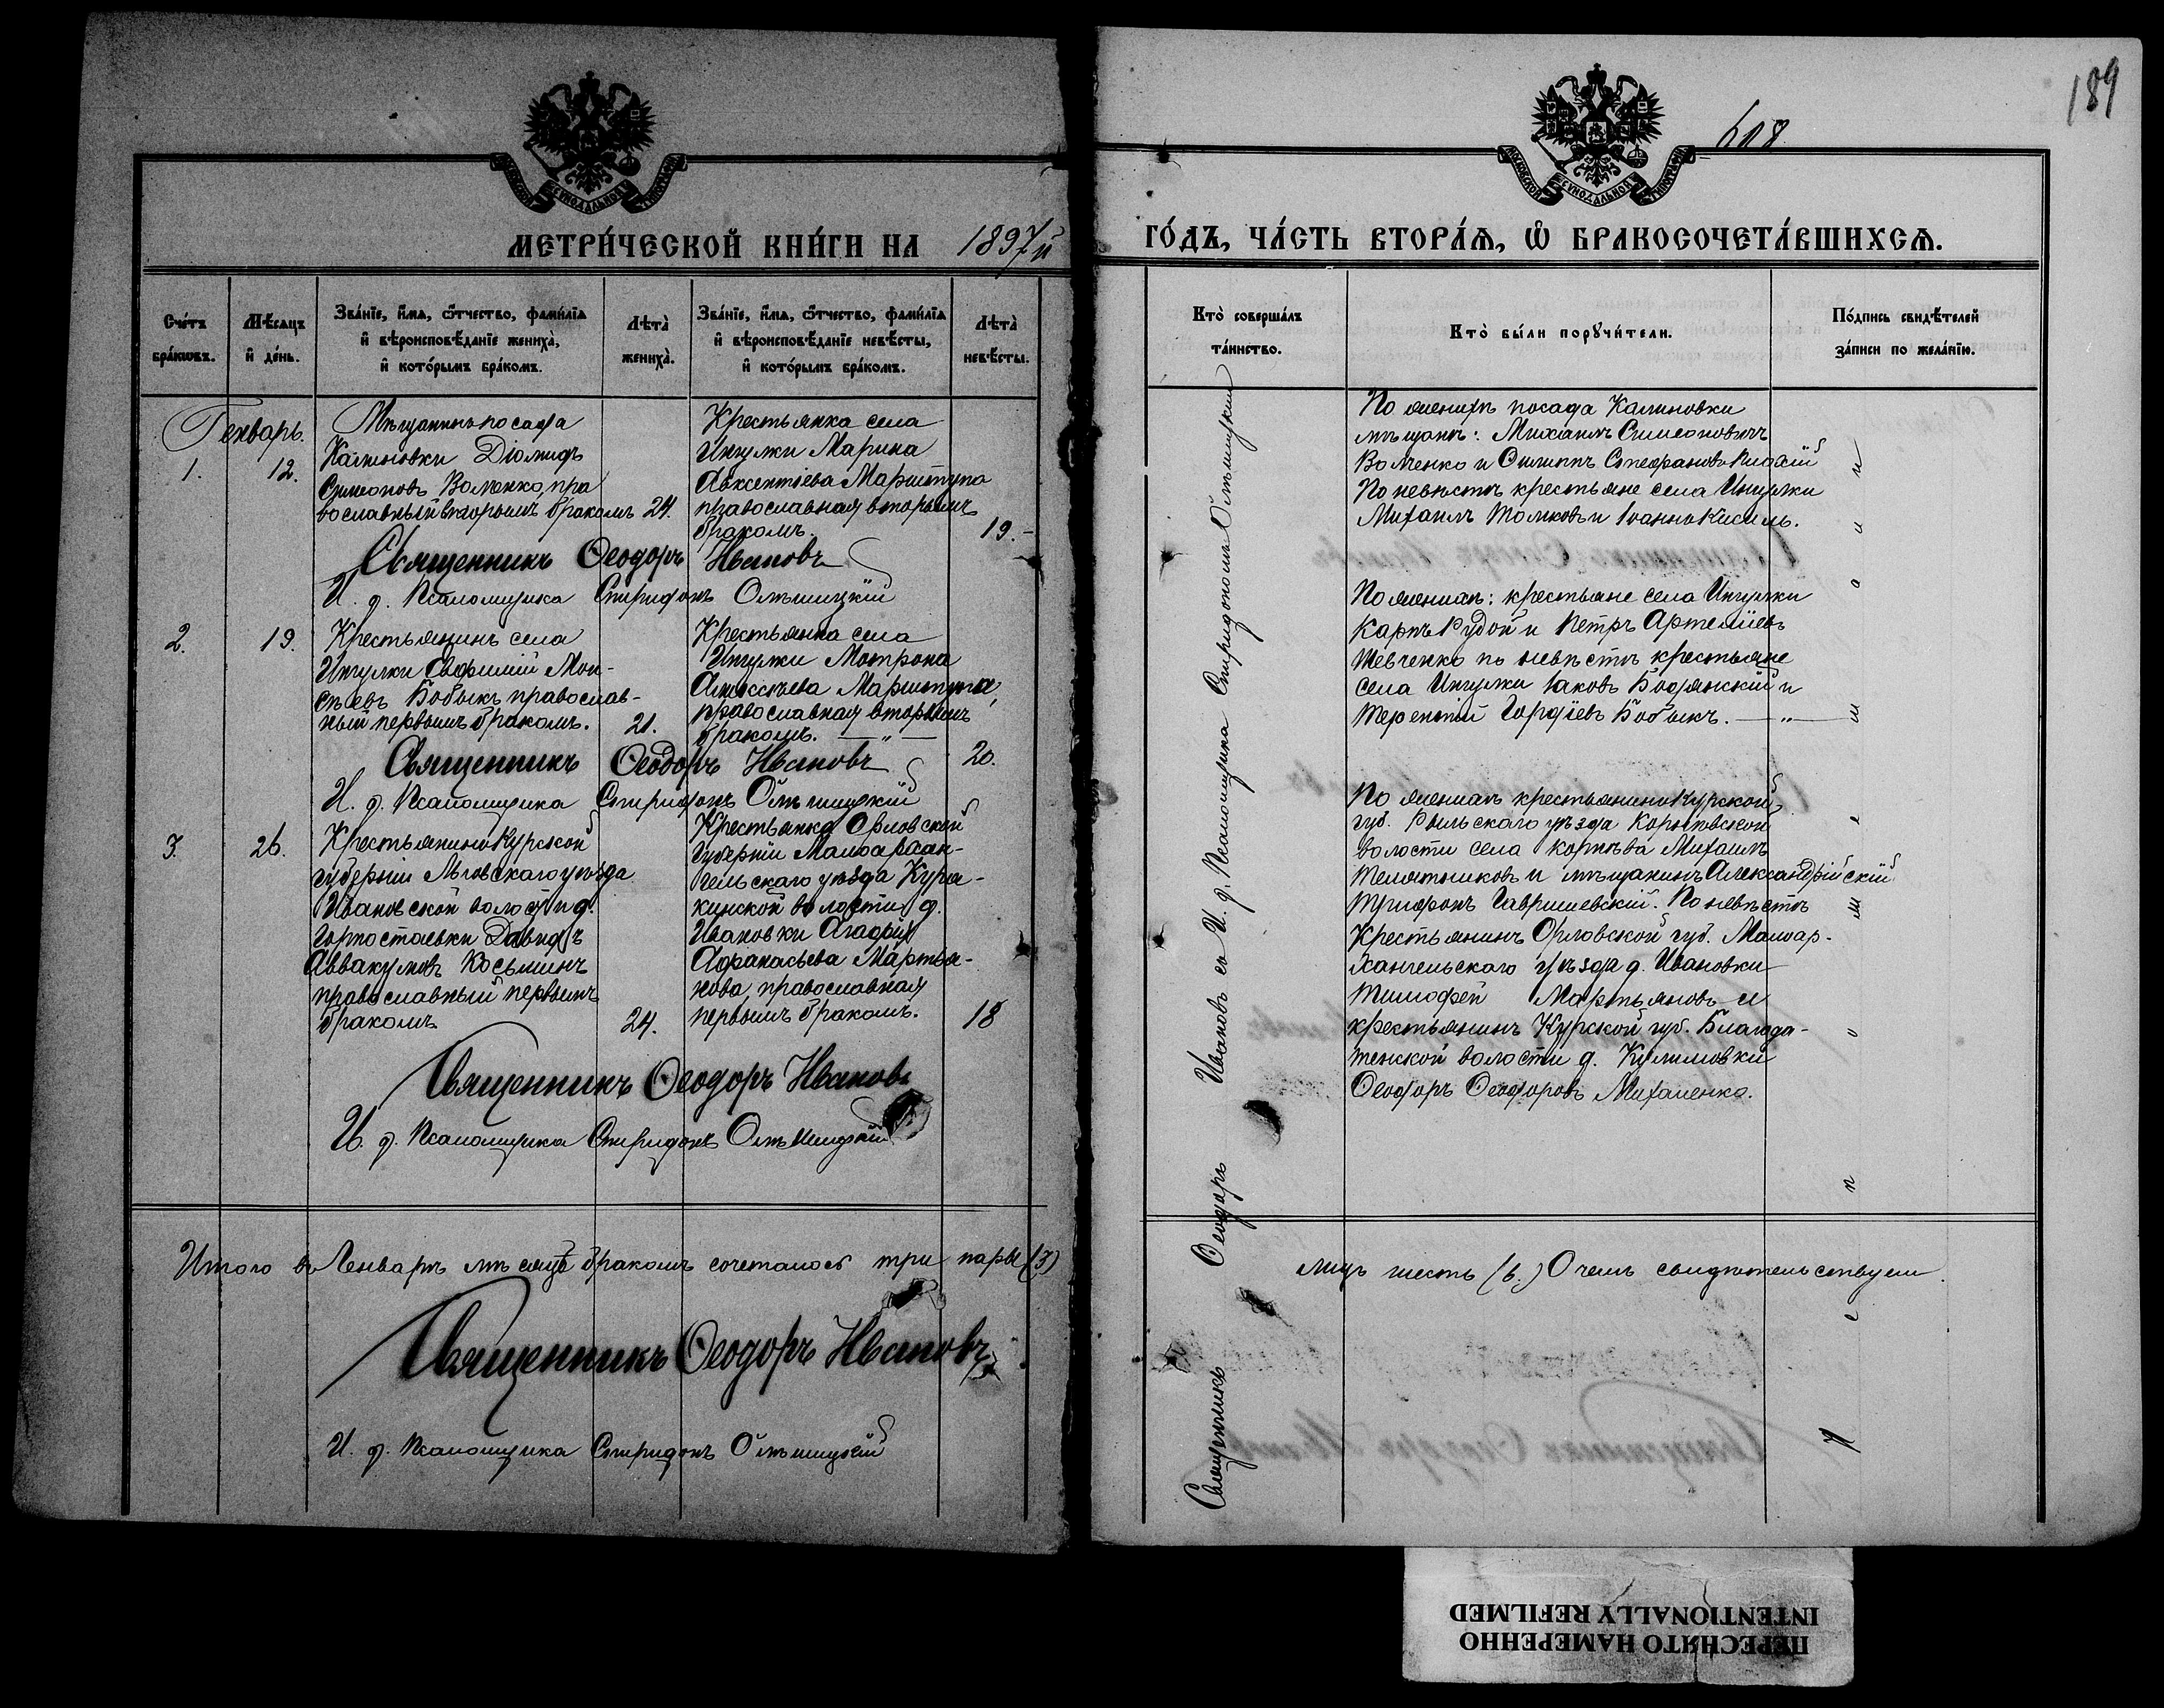 189
608
МОСКОВСКОЙ СѴНОДАЛЬНОЙ ТИПОГРАФІИ
МОСКОВСКОЙ СѴНОДАЛЬНОЙ ТИПОГРАФІИ
МЕТРИ́ЧЕСКОЙ КНИ́ГИ НА 1897й
ГО́ДЪ, ЧА́СТЬ ВТОРА́Ѧ, Ѽ БРАКОСОЧЕТА́ВШИХСѦ.
Сче́тъ бра́кѡвъ.
Мѣ́сѧцъ и҆ де́нь.
Зва́нїе, и҆́мѧ, ѻ҆́тчество, фами́лїѧ
и҆ вѣроисповѣ́данїе жениха̀,
и҆ кото́рымъ бра́комъ.
Лѣта̀ жениха̀.
Зва́нїе, и҆́мѧ, ѻ҆́тчество, фами́лїѧ
и҆ вѣроисповѣ́данїе невѣ́сты,
и҆ кото́рымъ бра́комъ.
Лѣта̀ невѣ́сты.
Кто̀ соверша́лъ
та́инство.
Кто̀ бы́ли порꙋчи́тели.
По́дпись свидѣ́телей
за́писи по жела́нїю.
Генварь.
1.
12.
Мѣщанинъ посада
Калиновки Діомидъ
Симеоновъ Волченко, пра
вославный вторымъ бракомъ
24.
Крестьянка села
Ингулки Марина
Авксентіева Марштупа
православная вторымъ
бракомъ.
19.-
По женихѣ посада Калиновки
мѣщане: Михаилъ Симеоновичъ
Волченко и Филиппъ Стефановъ
По невѣстѣ крестьяне села Ингулки
Михаилъ Толковъ и Іоаннъ Кисиль.
Священникъ Ѳеодоръ Ивановъ
И. д. Псаломщика Спиридонъ Ольшицкій
2.
19.
Крестьянинъ села
Ингулки Евфимій Мои-
сѣевъ Бобыкъ православ-
ный первымъ бракомъ.
21.
Крестьянка села
Ингулки Мотрона
Алексѣева Маршупа,
православная вторымъ
бракомъ. — " —
20.
По женихѣ: крестьяне села Ингулки
Карпъ Рудой и Петръ Артеміевъ
Шевченко по невѣстѣ крестьяне
села Ингулки Іаковъ Бодянскій и
Терентій Гордіевъ Бобыкъ. — " —
Священникъ Ѳеодоръ Ивановъ
И. д. Псаломщика Спиридонъ Ольшицкій
3.
26.
Крестьянинъ Курской
губерніи Льговскаго уѣзда
Ивановской волости д.
Горностаевки Давидъ
Аввакумовъ Косьминъ
православный первымъ
бракомъ
24.
Крестьянка Орловской
Губерніи Малоархан-
гельскаго уѣзда Кура-
кинской волости д.
Ивановки Агафія
Афанасьева Мартья-
нова, православная
первымъ бракомъ.
18
По женихѣ крестьянинъ Курской
губ. Рыльскаго уѣзда
волости села Михаилъ
Телятниковъ и мѣщанинъ Александрійскій
Трифонъ Гавришевскій. По невѣстѣ
Крестьянинъ Орловской губ. Малоар-
хангельскаго уѣзда д. Ивановки
Тимофей Мартьяновъ и
крестьянинъ Курской губ. Благода-
тенской волости д.
Ѳеодоръ Ѳеодоровъ Михаленко.
Священникъ Ѳеодоръ Ивановъ
И. д. Псаломщика Спиридонъ Ольшицкій
Священникъ Ѳеодоръ Ивановъ съ И. д. Псаломщика Спиридономъ Ольшицкимъ
Итого въ Генварѣ мѣсяцѣ бракомъ сочеталось три пары (3)
лицъ шесть (6.) О чемъ свидѣтельствуемъ.
Священникъ Ѳеодоръ Ивановъ
И. д. Псаломщика Спиридонъ Ольшицкій
ПЕРЕСНЯТО НАМЕРЕННО
INTENTIONALLY REFILMED